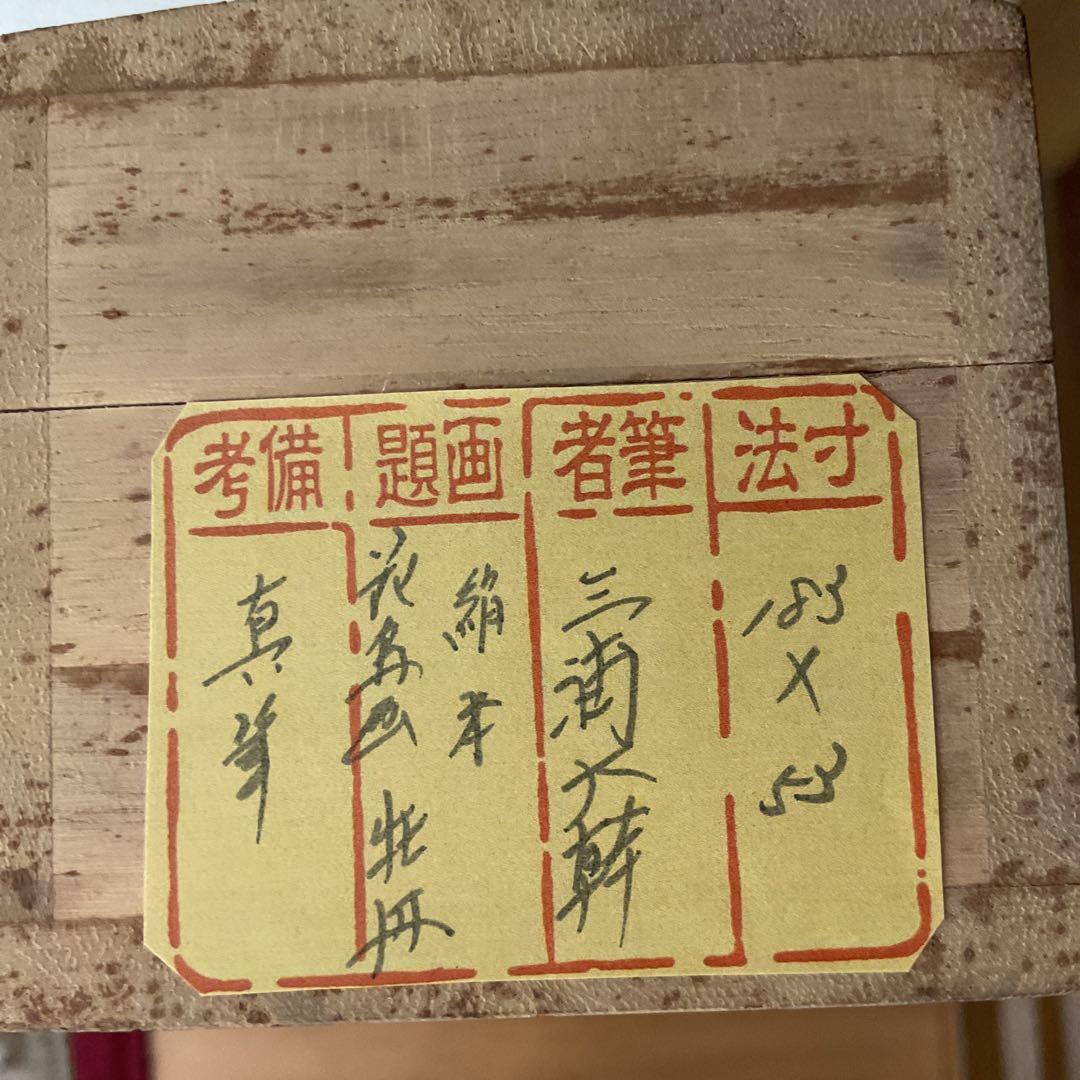 寸法
183
X
53
筆者
三浦大幹
画題
絹本
花鳥画 牡丹
備考
真筆